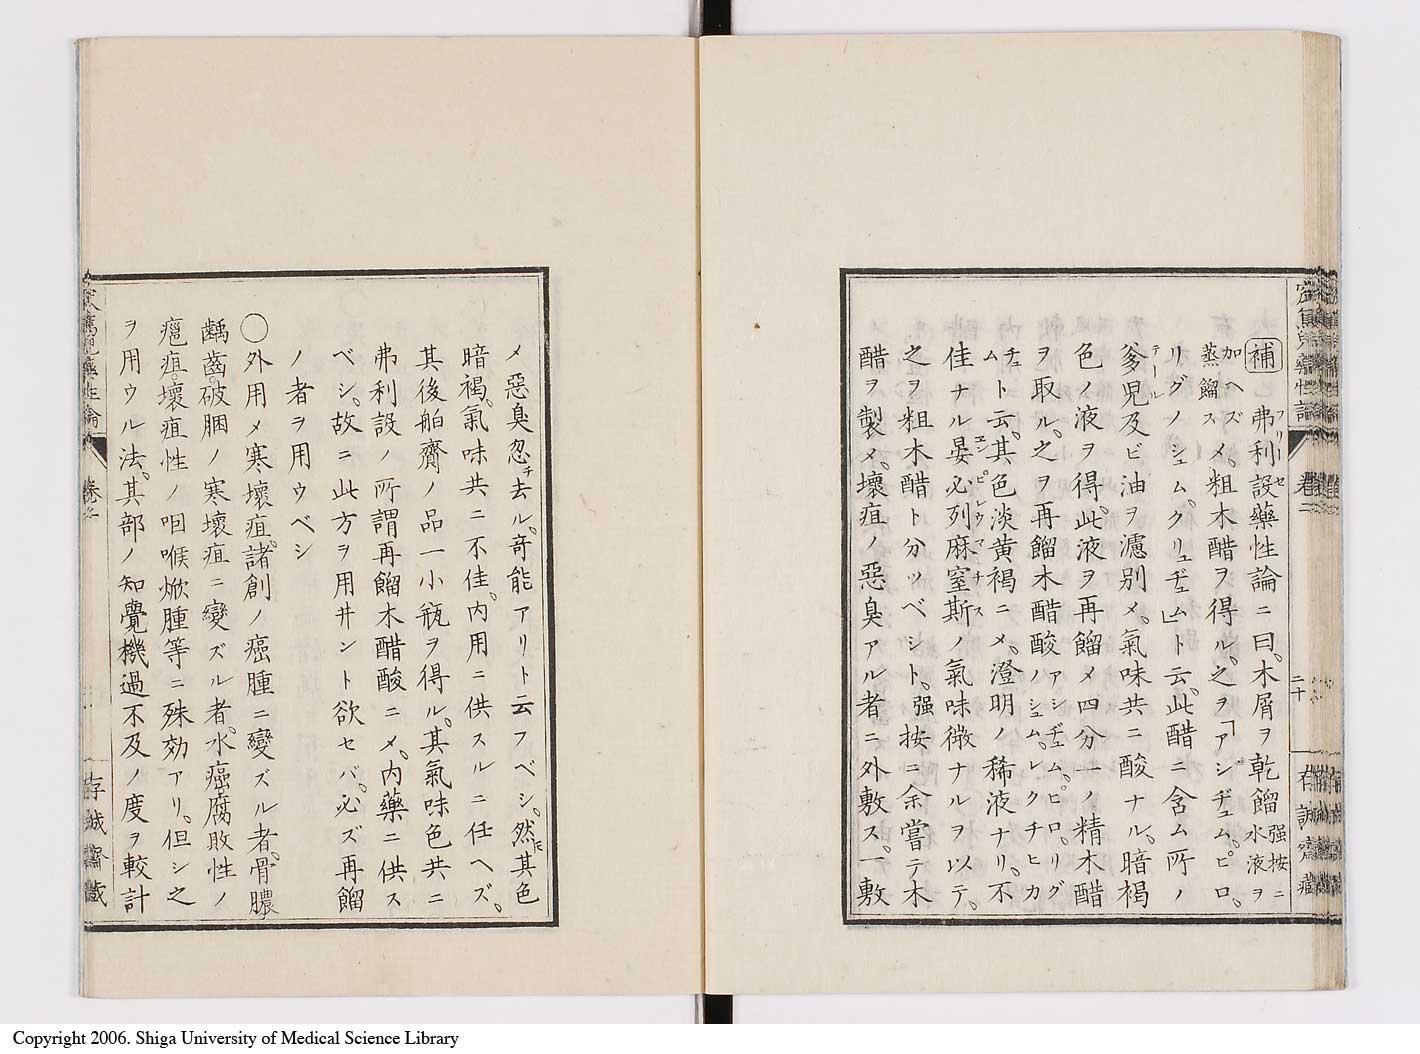 補 弗利設藥性論ニ曰。木屑ヲ乾餾 强按ニ水液ヲ
フリーセ
加ヘズ蒸餾ス メ。粗木醋ヲ得ル。之ヲ「アシヂュム。ピロ。
リグノシュム。クリュヂュム」ト云。此醋ニ含ム所ノ
爹児及ビ油ヲ濾別メ。氣味共ニ酸ナル。暗褐
テール
色ノ液ヲ得。此液ヲ再餾メ四分一ノ精木醋
ヲ取ル。之ヲ再餾木醋酸 アシヂュム。ピロ。リグノシュム。レクチヒカチュム
ト云。其色淡黄褐ニメ。澄明ノ稀液ナリ。不
佳ナル晏必列麻窒斯ノ氣味微ナルヲ以テ。
エンピレウマチナス
之ヲ粗木醋ト分ツベシト。强按ニ余嘗テ木
醋ヲ製メ。壞疽ノ惡臭アル者ニ外敷ス。一敷
二十
存誠齋藏
メ惡臭忽チ去ル。奇能アリト云フベシ。然𪜈其色
暗褐。氣味共ニ不佳。内用ニ供スルニ任ヘズ。
其後舶齎ノ品一小瓶ヲ得ル。其氣味色共ニ
弗利設ノ所謂再餾木醋酸ニメ。内藥ニ供ス
ベシ。故ニ此方ヲ用井ント欲セバ。必ズ再餾
ノ者ヲ用ウベシ
○外用メ寒壞疽。諸創ノ癌腫ニ變ズル者。骨膿
齲齒。破胭ノ寒壞疽ニ變ズル者。水癌腐敗性ノ
瘟疽壞疽性ノ咽喉焮腫等ニ殊効アリ。但シ之
ヲ用ウル法。其部ノ知覺機過不及ノ度ヲ較計
存誠齋藏
Copyright 2006. Shiga University of Medical Science Library